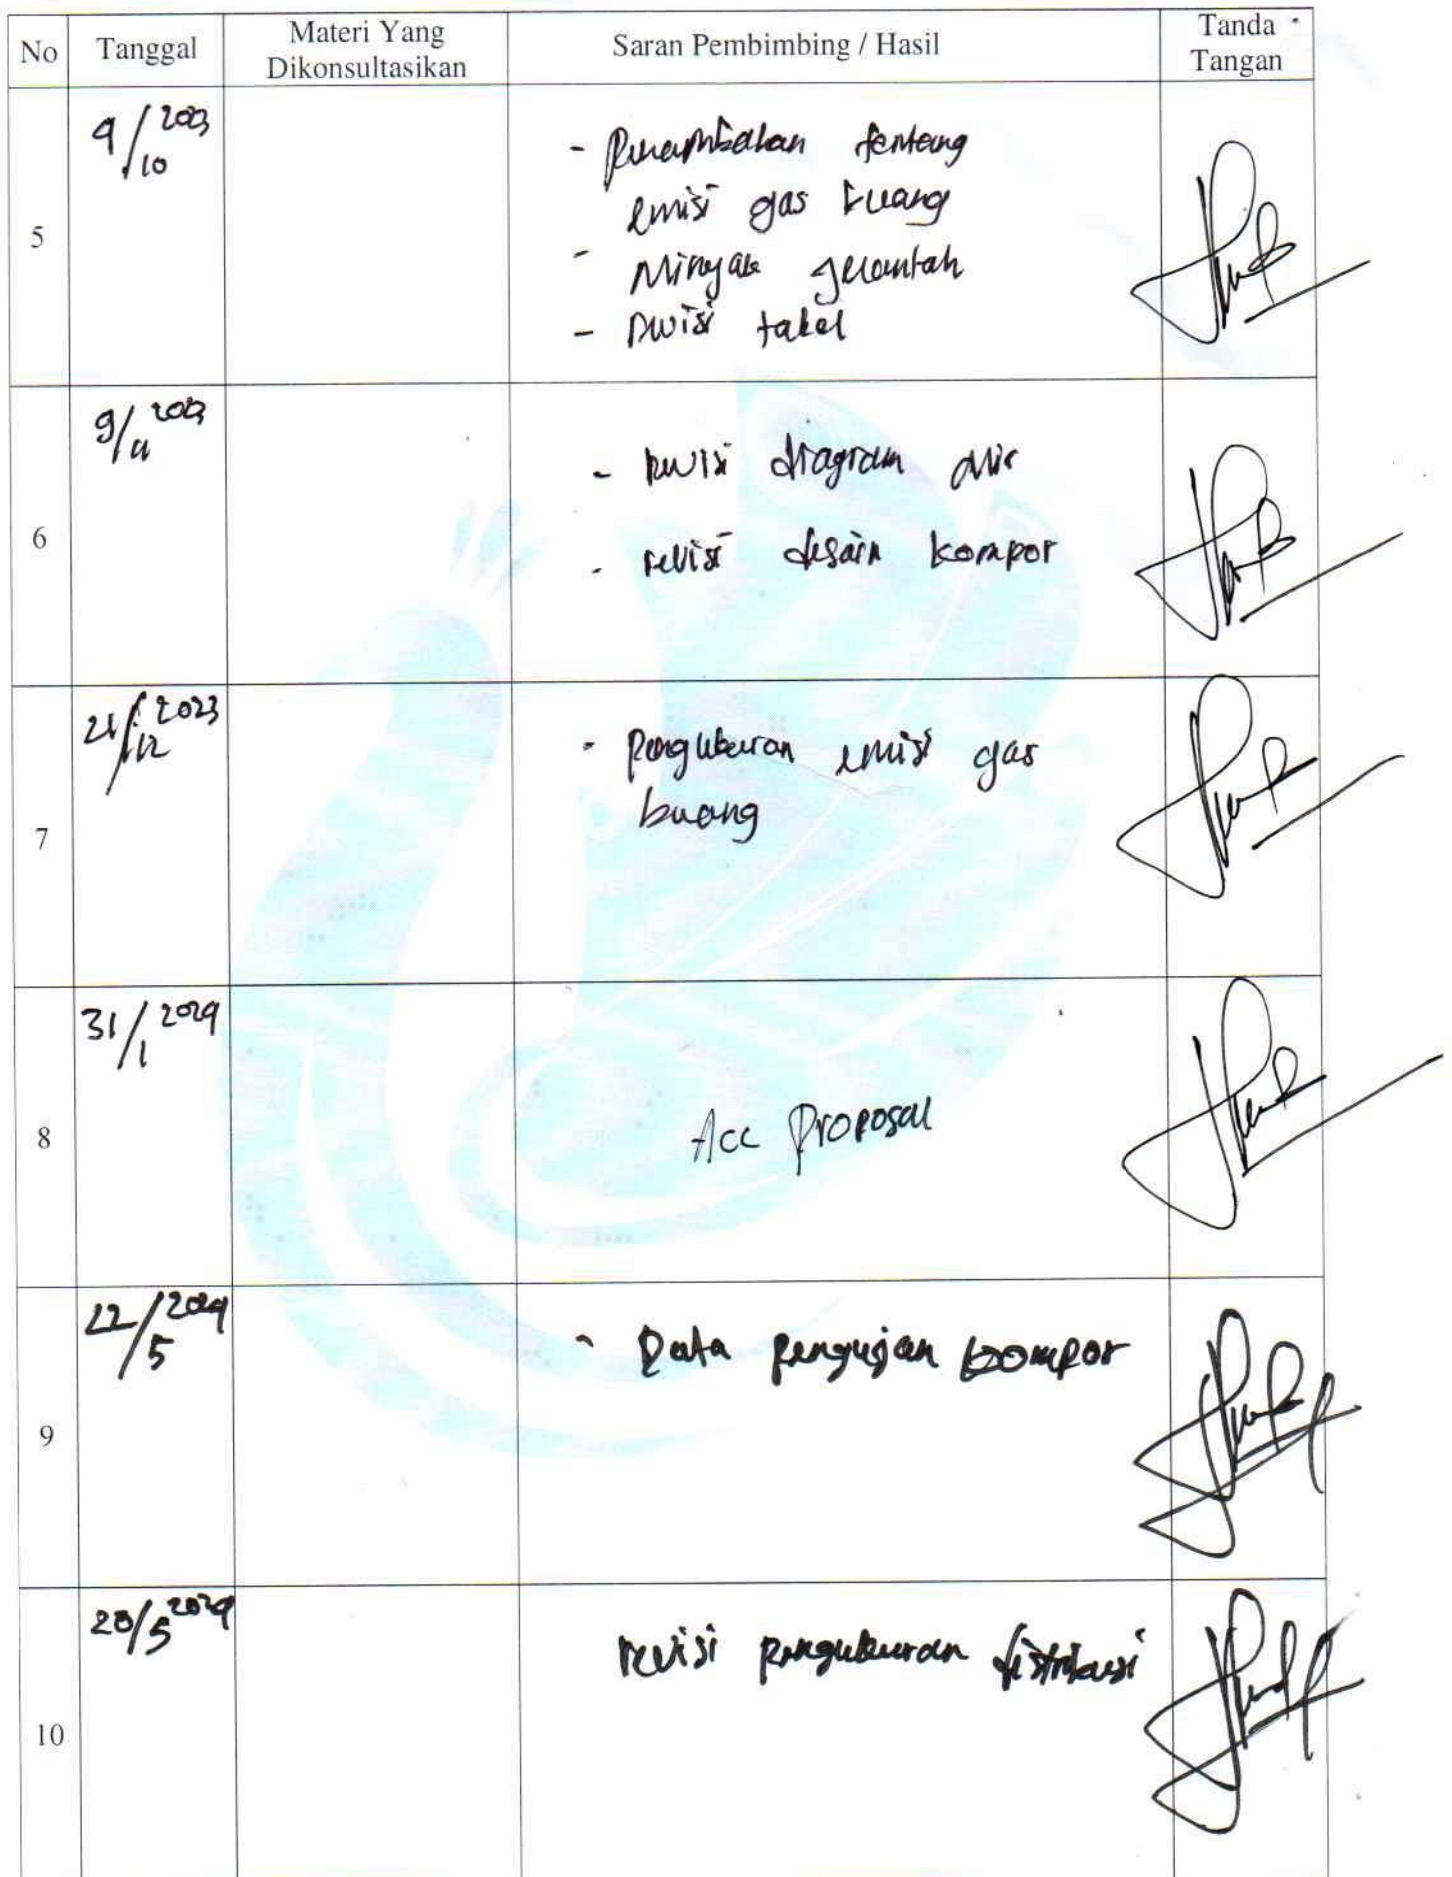 No Tanggal Materi Yang Dikonsultasikan Saran Pembimbing / Hasil Tanda Tangan
5 9/10 2023
- Penambahan tentang
emisi gas buang
- Minyak jelantah
- revisi tabel
6 9/11 2023
- revisi diagram alir
- revisi desain kompor
7 21/12 2023
- Pengukuran emisi gas
buang
8 31/1 2024
Acc Proposal
9 22/5 2024
- Data pengujian kompor
10 28/5 2024
revisi pengukuran distribusi